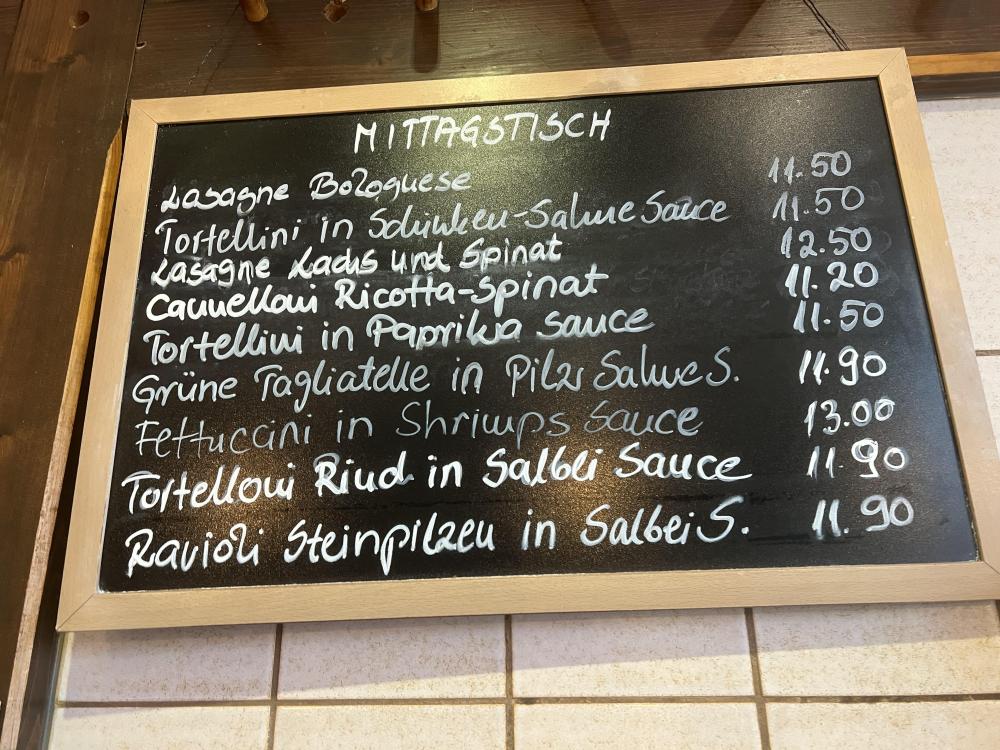 MITTAGSTISCH
Lasagne Bolognese 11.50
Tortellini in Schinken-Sahne Sauce 11.50
Lasagne Lachs und Spinat 12.50
Cannelloni Ricotta-Spinat 11.20
Tortellini in Paprika Sauce 11.50
Grüne Tagliatelle in Pilz Sahne S. 11.90
Fettuccini in Shrimps Sauce 13.00
Tortelloni Rind in Salbei Sauce 11.90
Ravioli Steinpilzen in Salbei S. 11.90